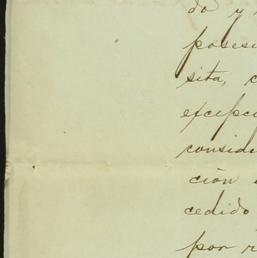 do y
posesi
sita, c
excepci
conside
ción
cedido
por r